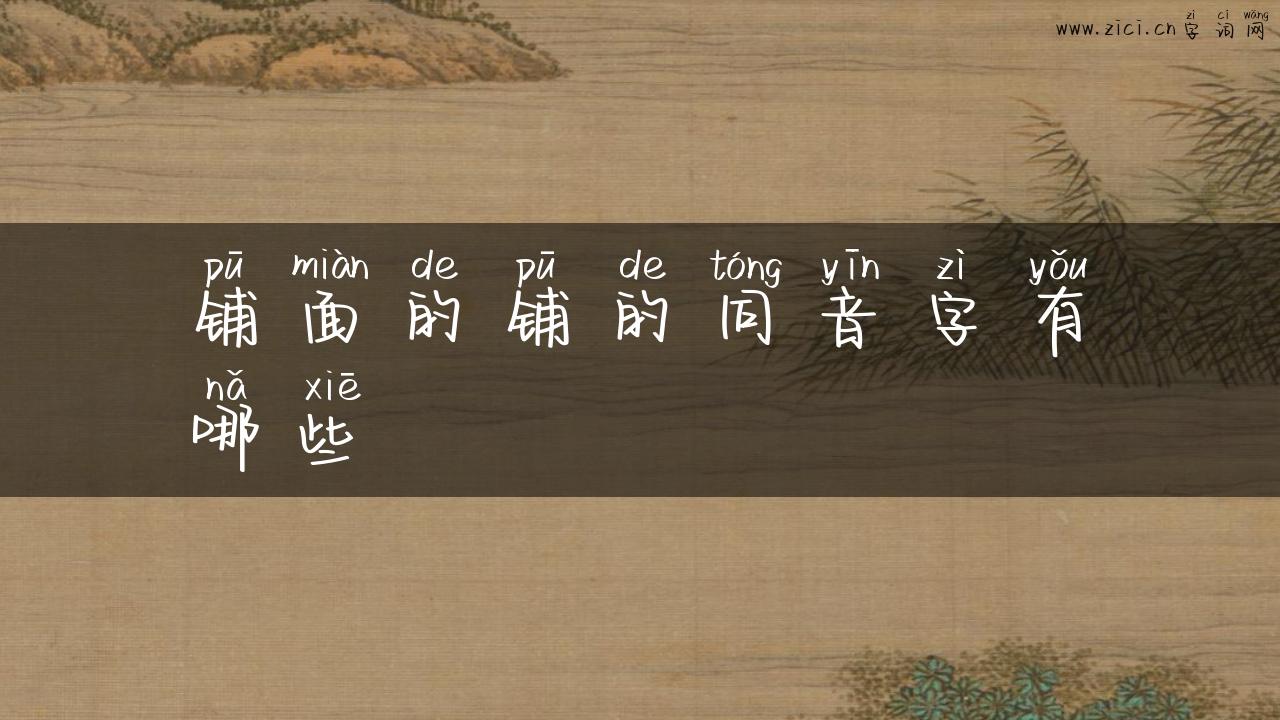 zì cí wǎng
www.zici.cn 字词网
pū miàn de pū de tóng yīn zì yǒu
铺面的铺的同音字有
nǎ xiē
哪些